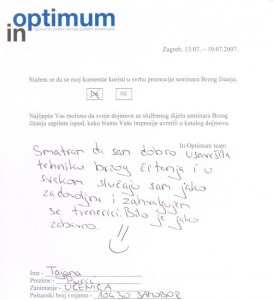 optimum
in
Zagreb, 13.07. – 19.07.2007.
Slažem se da se moj komentar koristi u svrhu promocije seminara Brzog čitanja.
DA
NE
Najljepše Vas molimo da svoje dojmove sa službenog dijela seminara Brzog
čitanja zapišete ispod, kako bismo Vaše impresije uvrstili u katalog dojmova.
In Optimum team
Smatram da sam dobro usavršila
tehniku brzog čitanja i u
svakom slučaju sam jako
zadovoljna i zahvaljujem
se trenerici. Bilo je jako
zabavno.
Ime - Tajana
Prezime -
Zanimanje - UČENICA
Poštanski broj i mjesto - 10430 SAMOBOR